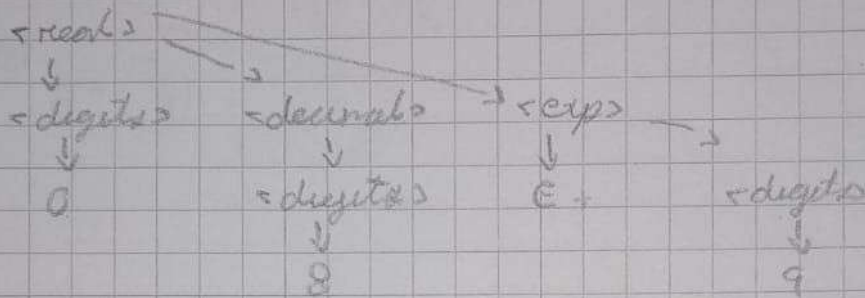 <real>
<digits> <decimal> <exp>
0 <digits> E + <digits>
8 9